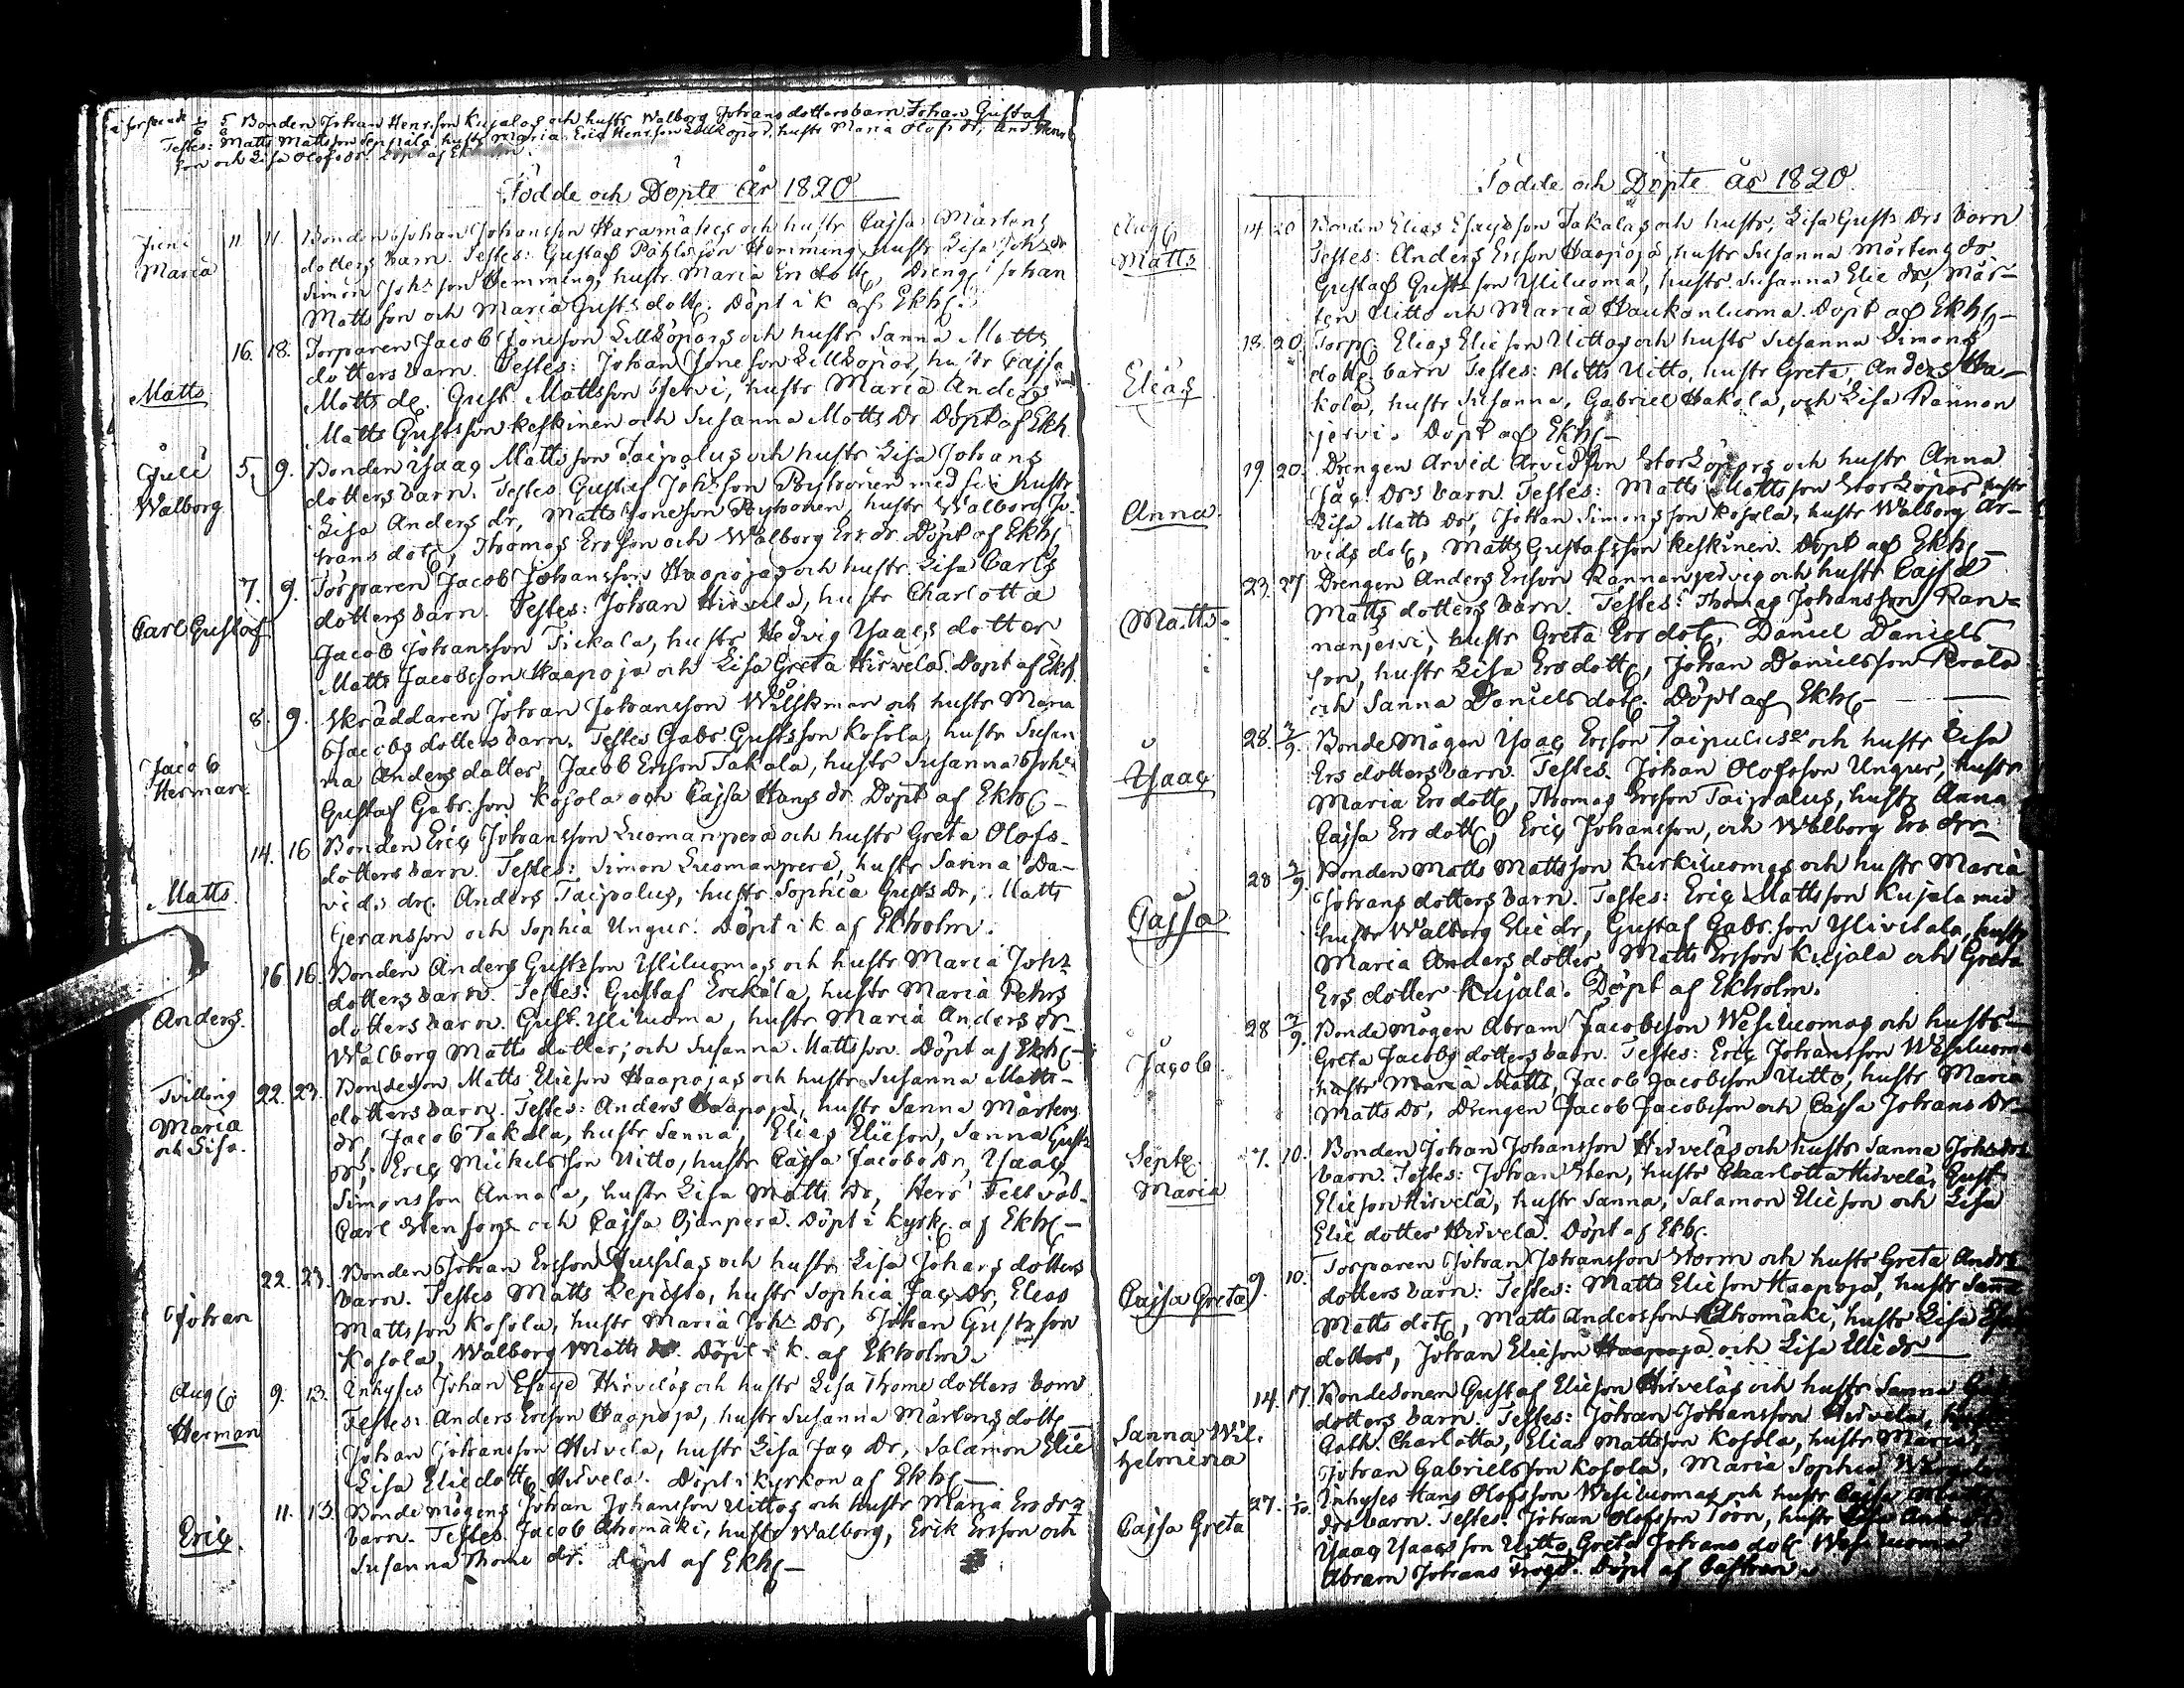 1/6 5/6 Bonden Johan Henr.son Kujalas och hustr Walborg Johansdotters barn Johan Gustaf
Testes: Matts Mattsson Seppälä, hustr Maria. Eric Henr.son Lillköpor, hustr Maria Olofs dr, And. Henr
son och Lisa Olofs dr. Döpt af Ekholm.
Födde och Döpte År 1820
Junii
Maria
11. 11. Bonden Johan Johansson Haramäkes och hustr Cajsa Mårtens
dotters barn. Testes: Gustaf Påhlsson Hemming hustr Lisa Johs dr
Simon Johs son Hemming, hustr Maria Ers dottr, Dreng. Johan
Mattsson och Maria Gusts dottr. Döpt i k af Ekh.
Matts
16. 18. Torparen Jacob Jöneson Lillköpors och hustr Sanna Matts
dotters barn. Testes: Johan Jöneson Lillköpor, hustr Cajsa
Matts dr. Gust. Mattsson Jervi, hustr Maria Anders
Matts Gustsson Keskinen och Susanna Matts Dr Döpt af Ekh.
Julii
Walborg
5. 9. Bonden Ysaac Mattsson Taipalus och hustr Lisa Johans
dotters barn. Testes Gustaf Johs son Rystronen med sin hustr
Lisa Anders dr, Matts Jöneson Rystronen, hustr Walborg Jo-
hans dotr, Thomas Ersson och Walborg Ers dr. Döpt af Ekh.
Carl Gustaf.
7. 9. Torparen Jacob Johansson Haapojas och hustr Lisa Carls
dotters barn. Testes: Johan Hirvelä, hustr Charlotta
Jacob Johansson Tickala, hustr Hedvig Ysaacs dotter
Matts Jacobsson Haapoja och Lisa Greta Hirvelä. Döpt af Ekh.
Jacob
Herman.
8. 9. Skräddaren Johan Johansson Wilskman och hustr Maria
Jacobs dotters barn. Testes Gabr Gustsson Kosola, hustr Susan
na Anders dotter, Jacob Ersson Takala, hustr Susanna Johs
Gustaf Gabr.son Kosola och Cajsa Hans dr. Döpt af Ekh.
Matts.
14. 16 Bonden Eric Johansson Luomanperä och hustr Greta Olofs-
dotters barn. Testes: Simon Luomanperä, hustr Sanna Da-
vids dr. Anders Taipalus, hustr Sophia Gusts Dr, Matts
Geransson och Sophia Ungur. Döpt i k. af Ekholm.
Anders.
16. 16. Bonden Anders Gustsson Yliluomas och hustr Maria Johs
dotters barn. Testes: Gustaf Erikälä, hustr Maria Pehrs
dotters barn. Gust. Yliluoma, hustr Maria Anders dr
Walborg Matts dotter, och Susanna Mattsson. Döpt af Ekh.
Tvilling
Maria
och Lisa.
22. 23. Bondeson Matts Elieson Haapojas och hustr Susanna Matts-
dotters barn. Testes: Anders Haapoja, hustr Sanna Mårtens
dr, Jacob Takala, hustr Sanna, Elias Elieson, Sanna Gusts
dr, Eric Mickelsson Uitto, hustr Cajsa Jacobs Dr, Ysaac
Simonsson Annala, hustr Lisa Matts Dr, Herr Feltväb.
Carl Stenfors och Cajsa Ojanperä. Döpt i kyrk. af Ekh.
Johan
22. 23. Bonden Johan Ersson Jussilas och hustr Lisa Johans dotters
barn. Testes Matts Repisto, hustr Sophia Jac. Dr, Elias
Mattsson Kosola, hustr Maria Johs Dr, Johan Gustsson
Kosola, Walborg Matts dr. Döpt i k. af Ekholm.
Aug.
Herman
9. 13. Inhyses Johan Esaiæ Hirveläs och hustr Lisa Thome dotters barn
Testes: Anders Ersson Haapoja, hustr Susanna Mårtens dottr
Johan Johansson Hirvelä, hustr Lisa Jac Dr, Salamon Elie
Lisa Elie dottr Hirvelä. Döpt i kyrkon af Ekh.
Eric.
11. 13. Bonde mågens Johan Johansson Uittos och hustr Maria Ers drs
barn. Testes Jacob Ahomäki, hustr Walborg, Erik Ersson och
Susanna Thome dr. Döpt af Ekh.
Födde och Döpte År 1820.
Aug.
Matts
14 20 Bonden Elias Esaiæson Takalas och hustr, Lisa Gusts Drs barn
Testes: Anders Ersson Haapoja, hustr Susanna Mårtens dr
Gustaf Gustsson Yliluoma, hustr Susanna Elie dr, Mår-
ten Uitto och Maria Haukonluoma. Döpt af Ekh.
Elias
18. 20. Torp. Elias Elieson Uittos och hustr Susanna Simons
dottr. barn Testes: Matts Uitto, hustr Greta, Anders Ha-
kola, hustr Susanna, Gabriel Hakola, och Lisa Rannan
jervi. Döpt af Ekh.
Anna.
19. 20. Drengen Arvid Arvidsson Storköpors och hustr Anna
Jac. Drs barn. Testes: Matts Mattsson Storköpor hustr
Lisa Matts Dr, Johan Simonsson Kosola, hustr Walborg Ar-
vids dotr, Matts Gustafsson Keskinen. Döpt af Ekh.
Matts.
23. 27 Drengen Anders Ersson Rannanjervis och hustr Cajsa
Matts dotters barn. Testes: Thomas Johansson Ran-
nanjervi, hustr Greta Ers dotr, Daniel Daniels
son, hustr Lisa Ers dottr, Johan Danielsson Perälä
och Sanna Daniels dotr. Döpt af Ekh.
Ysaac
28. 3/9. Bonde Mågen Ysaac Ersson Taipaluse och hustr Lisa
Ers dotters barn. Testes. Johan Olofsson Ungur, hustr
Maria Ers dottr, Thomas Ersson Taipalus, hustr Anna
Cajsa Ers dottr, Eric Johansson, och Walborg Ers dr
Cajsa
28 3/9. Bonden Matts Mattsson Kurkiluomas och hustr Maria
Johans dotters barn. Testes: Eric Mattsson Kujala med
hustr Walborg Elie dr, Gustaf Gabr.son Ylivitala, hustr
Maria Anders dotter, Matts Ersson Kujala och Greta
Ers dotter Kujala. Döpt af Ekholm.
Jacob.
28 3/9. Bonde mågen Abram Jacobsson Wesiluomas och hustr
Greta Jacobs dotters barn. Testes: Eric Johansson Wesiluoma
hustr Maria Matts, Jacob Jacobsson Uitto, hustr Maria
Matts Dr, Drengen Jacob Jacobsson och Cajsa Johans Dr
Sept.
Maria
7. 10. Bonden Johan Johansson Hirveläs och hustr Sanna Johs drs
barn. Testes: Johan Sten, hustr Charlotta Hirvelä, Gust
Elieson Hirvelä, hustr Sanna, Salamon Elieson och Lisa
Elie dotter Hirvelä. Döpt af Ekh.
Cajsa Greta
9. 10. Torparen Johan Johansson Storm och hustr Greta Anders
dotters barn: Testes: Matts Elieson Haapoja, hustr Sanna
Matts dotr, Matts Andersson Ahomäki, hustr Lisa
dotter, Johan Elieson Haapoja och Lisa Elie dr
Sanna Wil-
helmina
14. 17. Bondesonen Gustaf Elieson Hirveläs och hustr Sanna
dotters barn. Testes: Johan Johansson Hirvelä,
Cath. Charlotta, Elias Mattsson Kosola, hustr Maria,
Johan Gabrielsson Kosola, Maria Sophia
Cajsa Greta
27. 1/10. Inhyses Hans Olofsson Wesiluomas och hustr Cajsa
drs barn. Testes: Johan Olofsson Törn, hustr
Ysaac Ysaacsson Uitto, Greta Johans dotr Wesiluoma
Abram Johans Döpt af